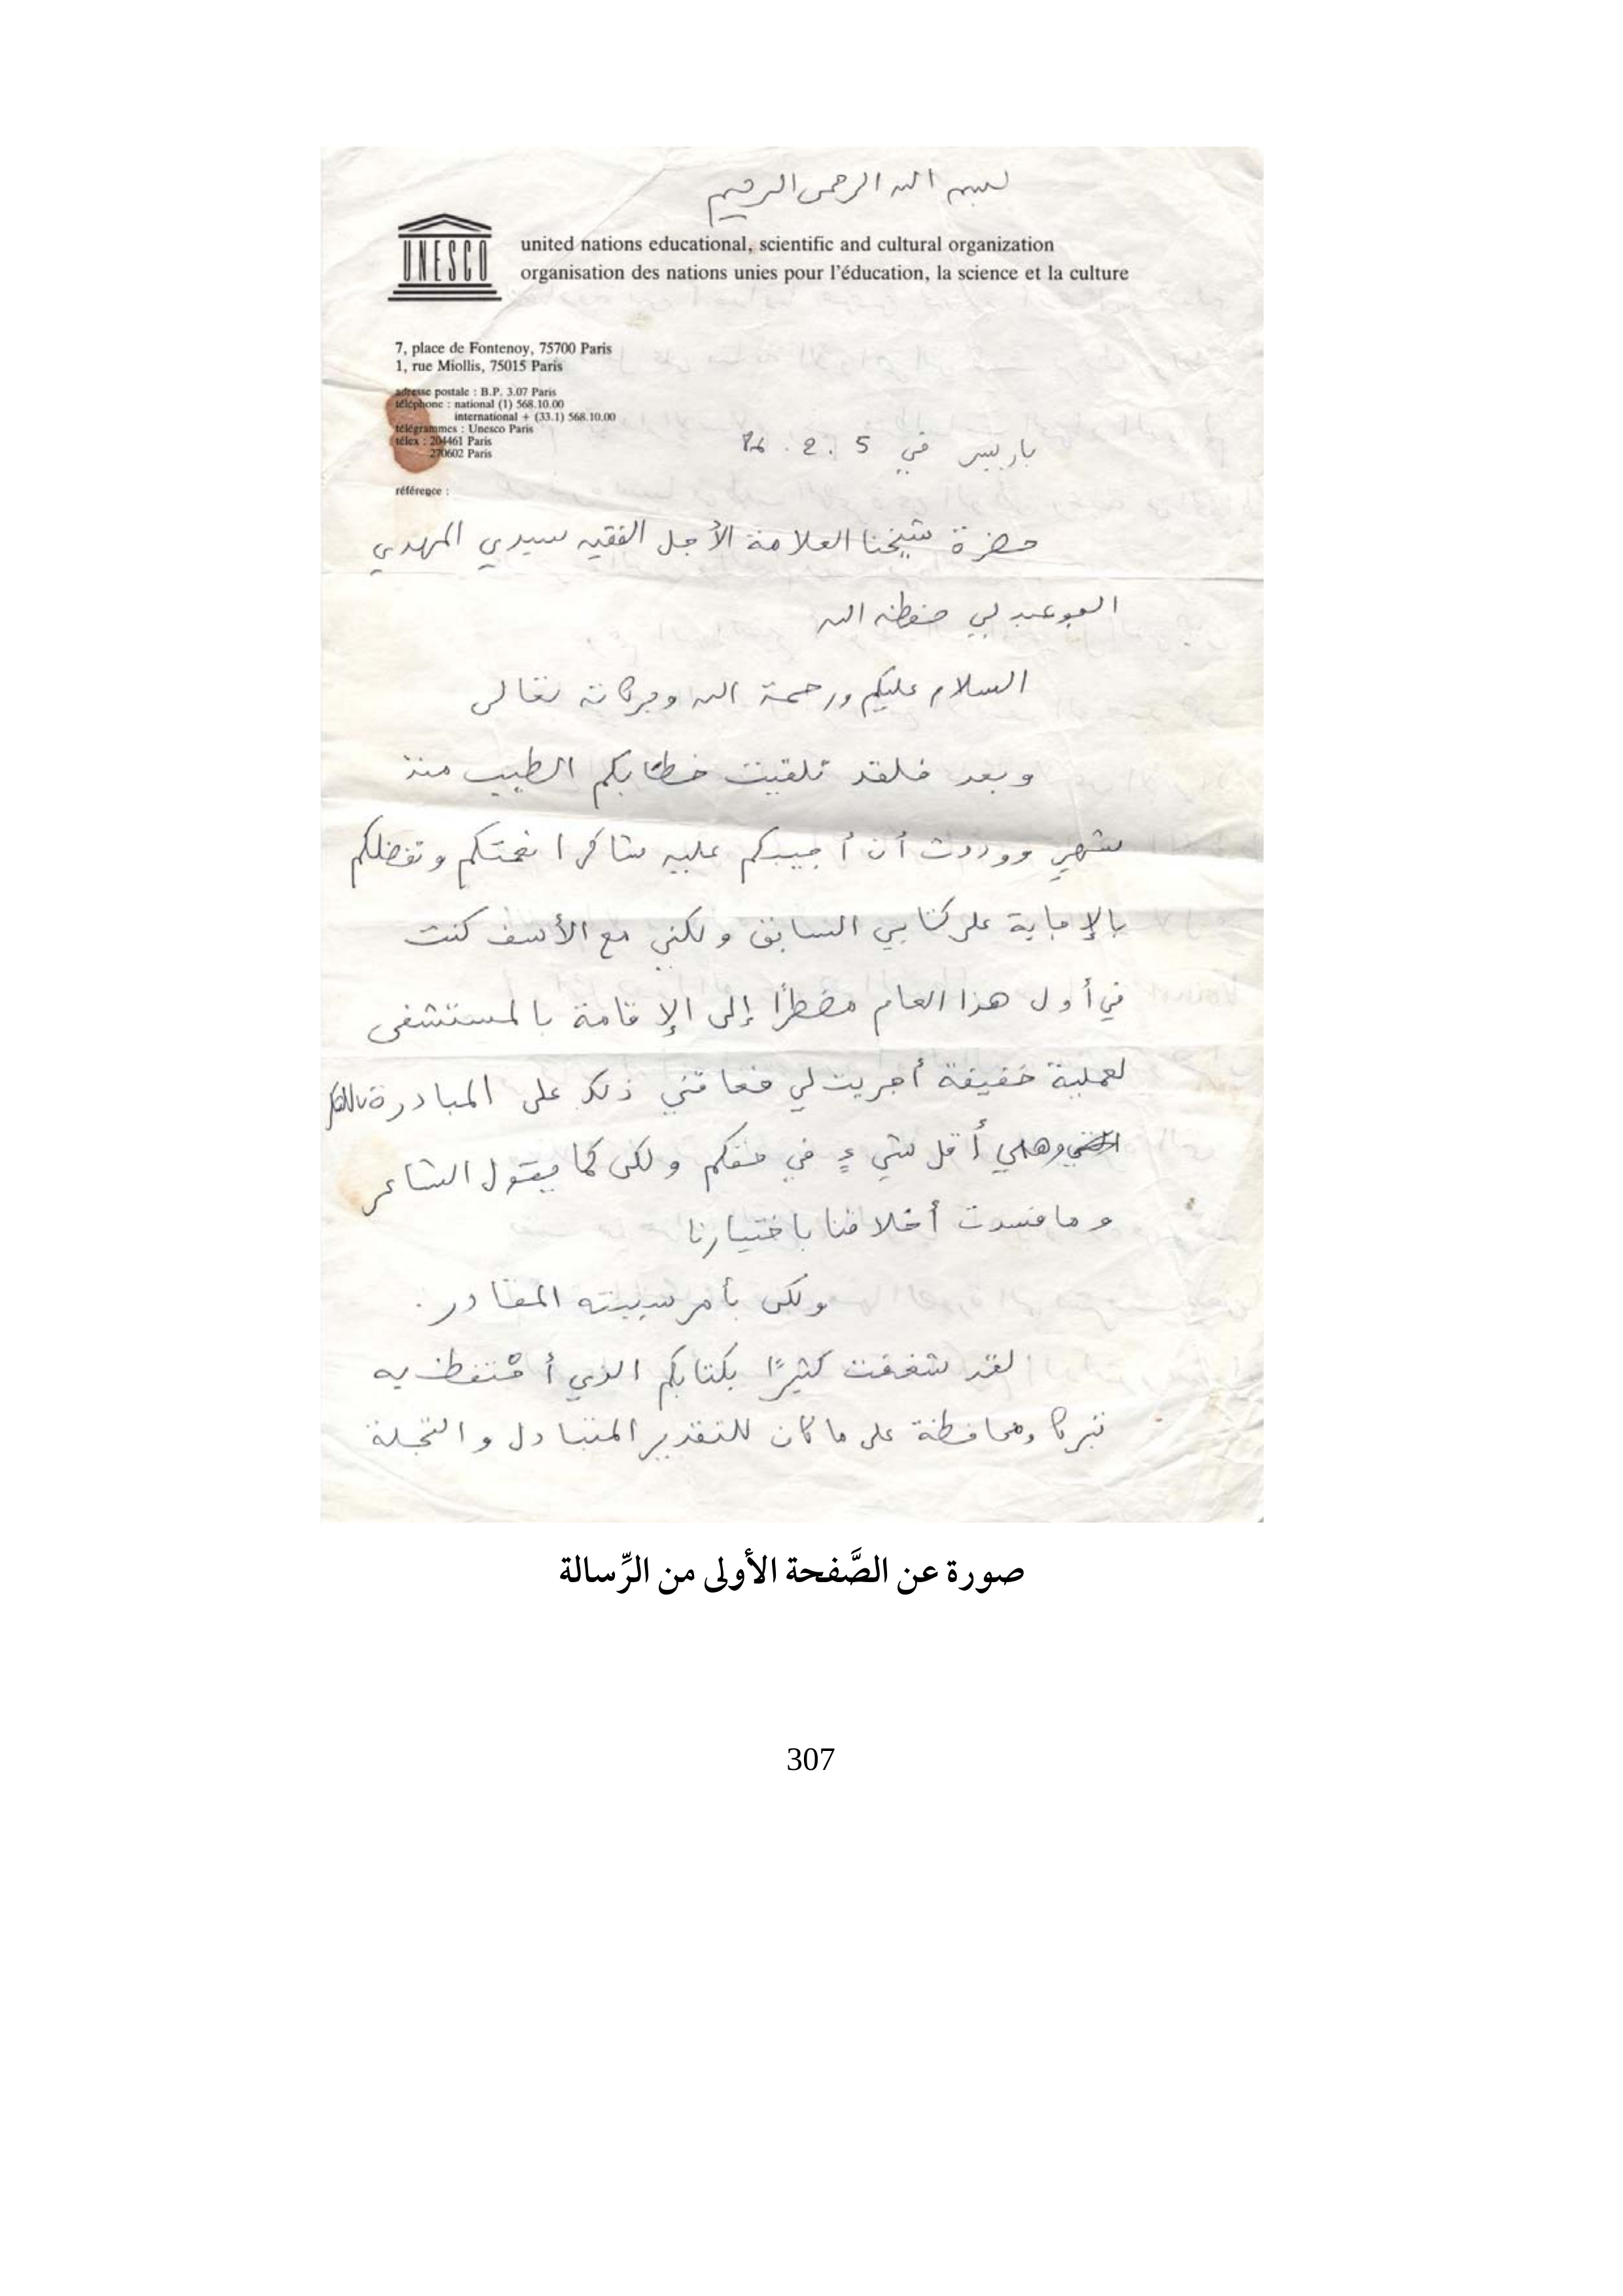 بسم الله الرحمن الرحيم
UNESCO
united nations educational, scientific and cultural organization
organisation des nations unies pour l'éducation, la science et la culture
7, place de Fontenoy, 75700 Paris
1, rue Miollis, 75015 Paris
adresse postale : B.P. 3.07 Paris
téléphone : national (1) 568.10.00
international + (33.1) 568.10.00
télégrammes : Unesco Paris
télex : 204461 Paris
270602 Paris
باريس في 5 . 2 .
référence :
حضرة شيخنا العلامة الأجل الفقيه سيدي المهدي
البوعبدلي حفظه الله
السلام عليكم ورحمة الله وبركاته تعالى
وبعد فلقد تلقيت خطابكم الطيب منذ
شهر ووددت أن أجيبكم عليه شاكرا نعمتكم وتفضلكم
بالإجابة على كتابي السابق ولكني مع الأسف كنت
في أول هذا العام مضطرًا إلى الإقامة بالمستشفى
لعملية خفيفة أجريت لي فعاقني ذلك على المبادرة
وهي أقل شيءٍ في حقكم ولكن كما يقول الشاعر
وما فسدت أخلاقنا باختيارنا
ولكن بأمر سببته المقادر.
لقد شغفت كثيرًا بكتابكم الذي أحْتفظ به
تبركا ومحافظة على ما كان للتقدير المتبادل والتجلة
صورة عن الصَّفحة الأولى من الرِّسالة
307